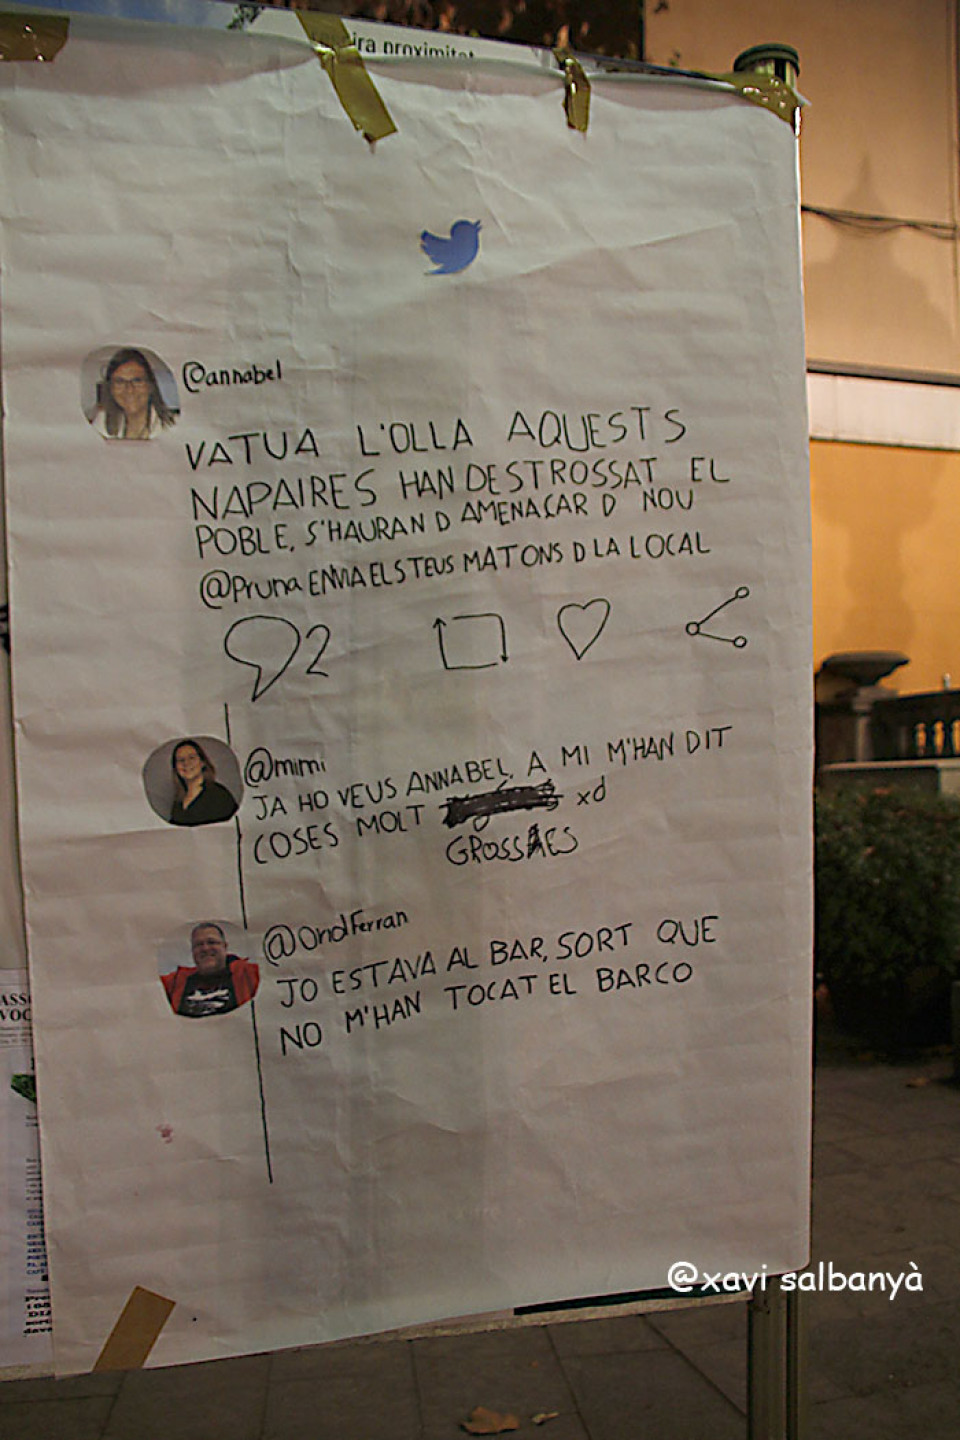 ira proximitat
@annabel
VATUA L'OLLA AQUESTS
NAPAIRES HAN DESTROSSAT EL
POBLE, S'HAURAN D AMENAÇAR D NOU
@Pruna ENVIA ELS TEUS MATONS D LA LOCAL
2
@mimi
JA HO VEUS ANNABEL, A MI M'HAN DIT
COSES MOLT xd
GROSSES
@OriolFerran
JO ESTAVA AL BAR, SORT QUE
NO M'HAN TOCAT EL BARCO
ASS
VOC
@xavi salbanyà